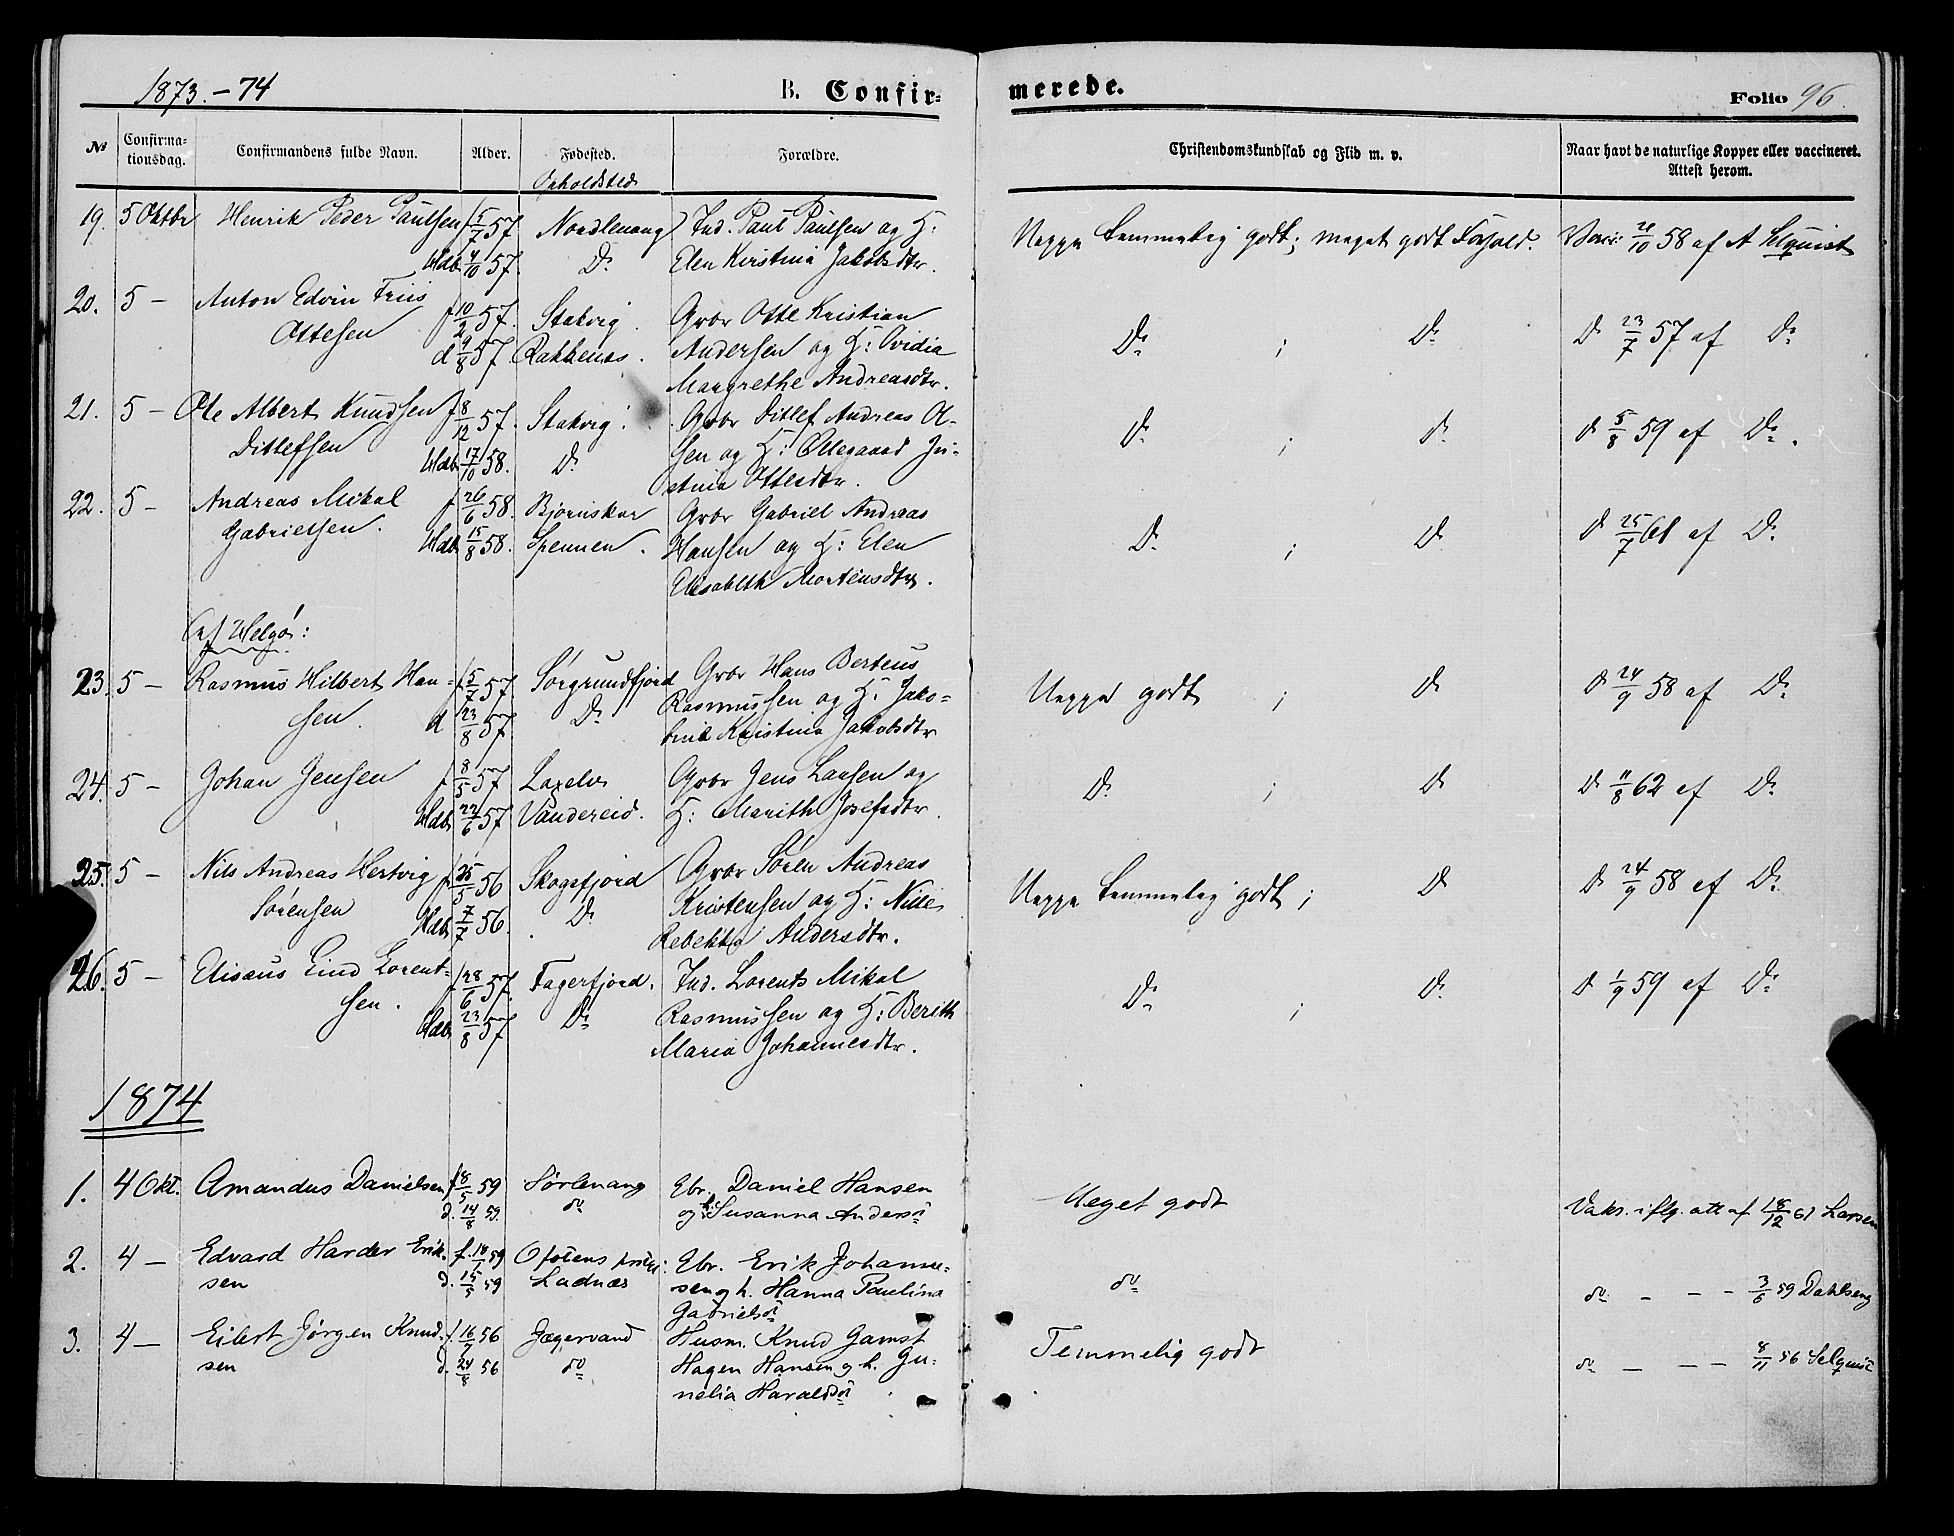 1873.-74 B. Confir-
merede. Folio 96.
№ Confirma-tionsdag. Confirmandens fulde Navn. Alder. Fødested. Forældre.
Opholdsted
Christendomskundskab og Flid m. v. Naar havt de naturlige Kopper eller vaccineret.
Attest herom.
19. 5 Oktbr Henrik Peder Paulsen f 5/7 57 Nordlenang Ind. Paul Paulsen og H: temmelig godt; meget godt Forhold. Vacc: 58 af A Selquist
Hdb 4/10 57. Do Elen Kirstina Jakobsdtr.
20. 5 — Anton Edvin Friis f 10/2 57. Stakvig. Gbr Otte Kristian Do ; Do D 23/7 57 af Do
Ottesen d 9/8 57 Rakkenes. Andersen og H: Ovidia
Margrethe Andreasdtr.
21. 5 — Ole Albert Knudsen f 8/12 57. Stakvig. Gbr Ditlef Andreas Ol- Do ; D D 5/8 59 af Do.
Ditlefsen Hdb 17/10 58. Do sen og H: Ollegaard Ju-
stina Ottesdtr.
22. 5 — Andreas Mikal f 26/6 58. Bjørnskar Gbr Gabriel Andreas Do ; D D 25/7 61 af Do
Gabrielsen. Hdb 15/8 58. Spennen. Hansen og H: Elen
Elisabeth Mortensdtr.
Af Helgø:
23. 5 — Rasmus Hilbert Han- f 5/7 57 Sørgrundfjord Gbr Hans Berteus godt ; D D 24/9 58 af Do
sen. d 23/8 57 Do Rasmussen og H: Jako-
bine Kristina Jakobsdtr
24. 5 — Johan Jensen f 8/5 57 Laxelv Gbr Jens Larsen og Do ; D D 11/8 62 af Do
Hdb 22/6 57 Vandereid. H: Marith Josefsdtr.
25. 5 — Nils Andreas Hertvig f 25/5 56 Skogsfjord Gbr Søren Andreas temmelig godt ; D D 24/9 58 af Do
Sørensen Hdb 7/7 56. Do Kristensen og H: Nille
Rebekka Andersdtr.
26. 5 — Elisæus Eind Lorent- f 28/6 57. Fagerfjord. Ind. Lorents Mikal Do ; D D 1/9 59 af Do
sen. Hdb 23/8 57 Do Rasmussen og H: Berith
Maria Johannesdtr.
1874
1. 4 Okt. Amandus Danielsen f 8/5 59 Sørlenang Ebr. Daniel Hansen Meget godt Vaks. iflg. att af 18/12 61 Larsen
d. 14/8 59. do og h. Susanna Andersd.
2. 4 — Edvard Harder Erik- f. 59 Ofotens præstgj: Ebr. Erik Johanne- do do — — — 3/6 59 Dahlseng
sen d. 15/5 59 Ladnæs sen og h. Hanna Paulina
Gabrielsd.
3. 4 — Eilert Jørgen Knud- f. 16/7 56 Jægervand Husm. Knud Gamst Temmelig godt do — — — 8/11 56 Selquist
sen d. 24/8 56 do Hagen Hansen og h. Gu-
nelia Haraldsd.